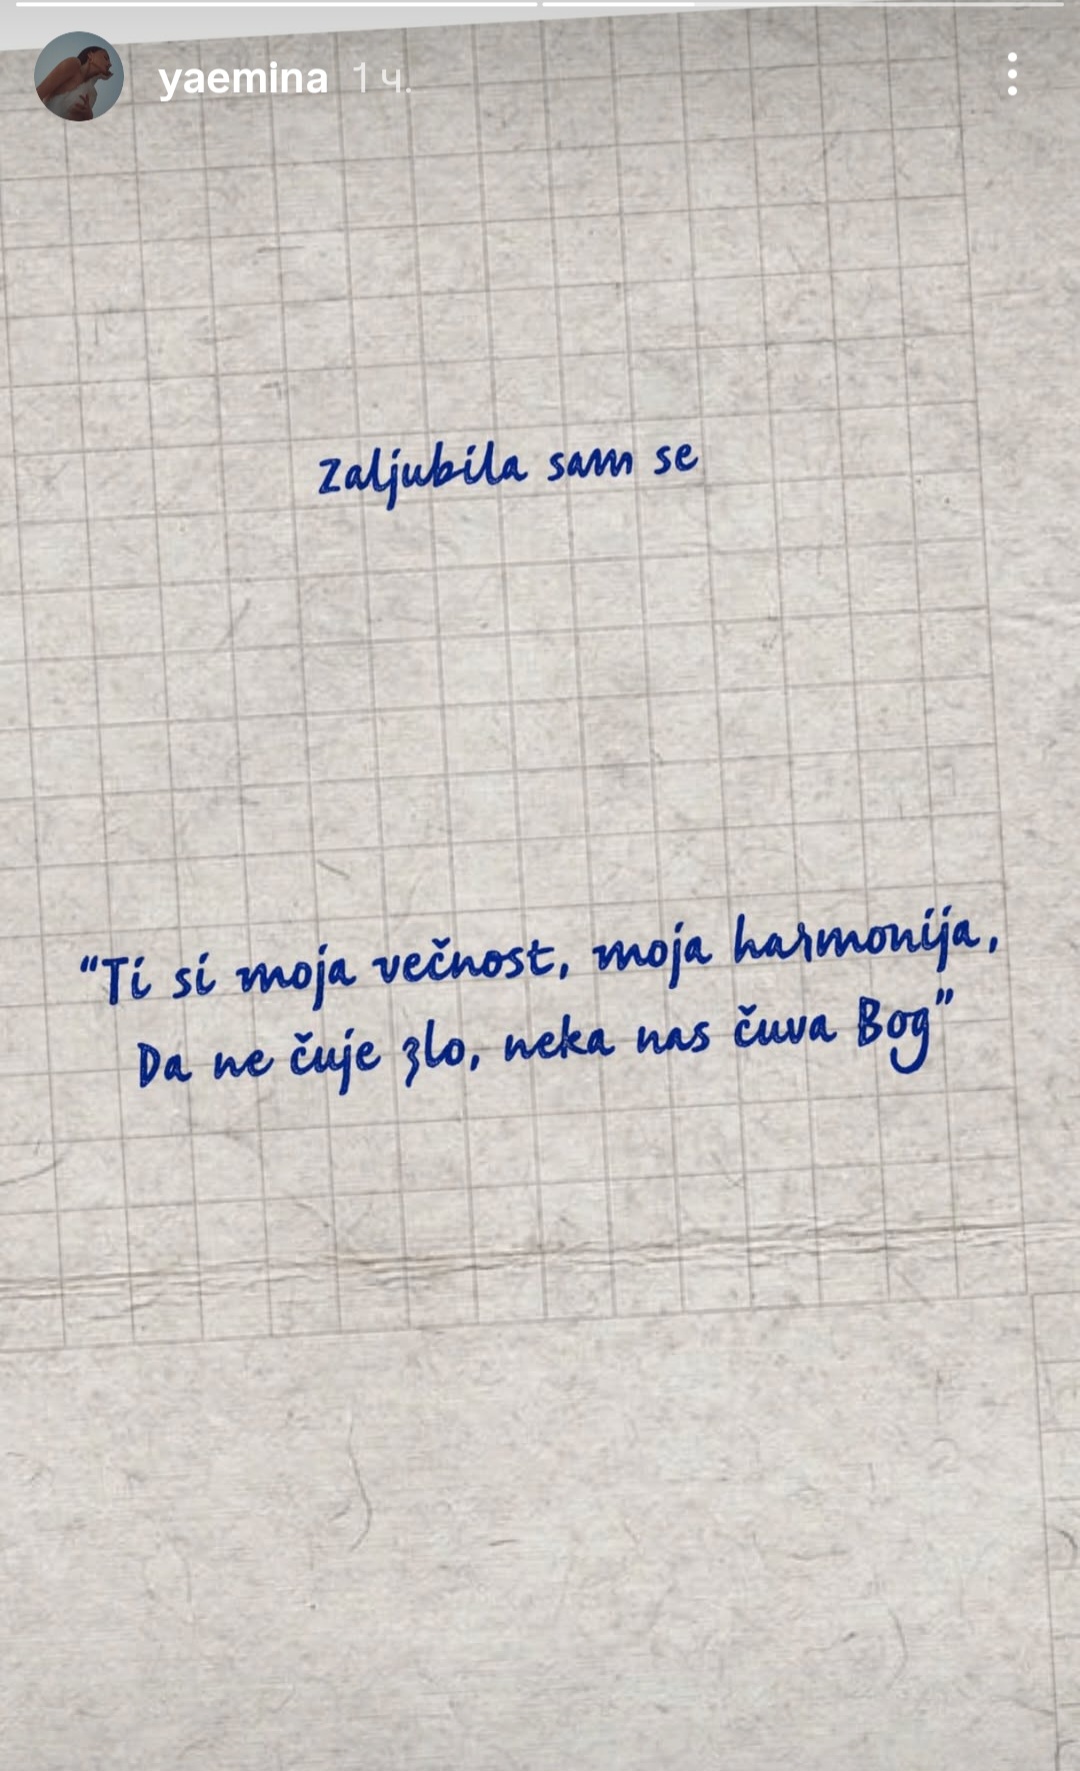 yaemina 1 ч.
Zaljubila sam se
“Ti si moja večnost, moja harmonija,
Da ne čuje zlo, neka nas čuva Bog”